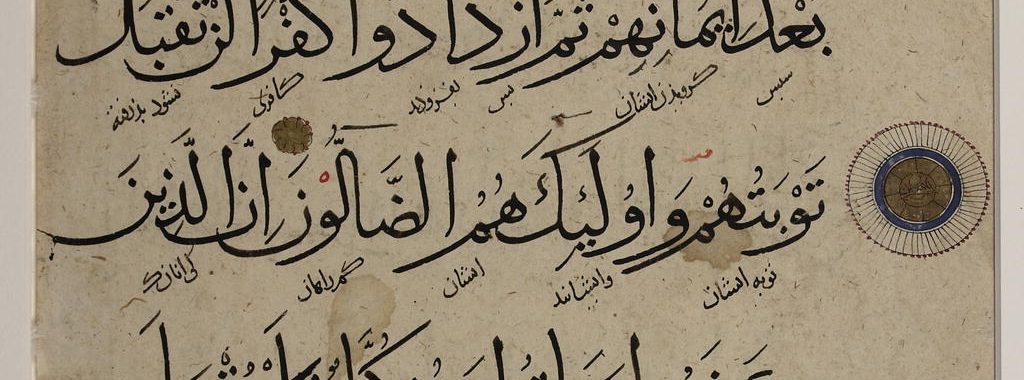 بَعْدَ اِيمَانِهِمْ ثُمَّ ازْدَادُوا كُفْرًا لَنْ تُقْبَلَ
سبس کرویدن ایشان سبس بفزودند کافری نشود بذرفته
تَوْبَتُهُمْ وَاُولَئِكَ هُمُ الضَّالُّونَ اِنَّ الَّذِينَ
توبه ایشان وایشانند ایشان کم راهان کی انانک